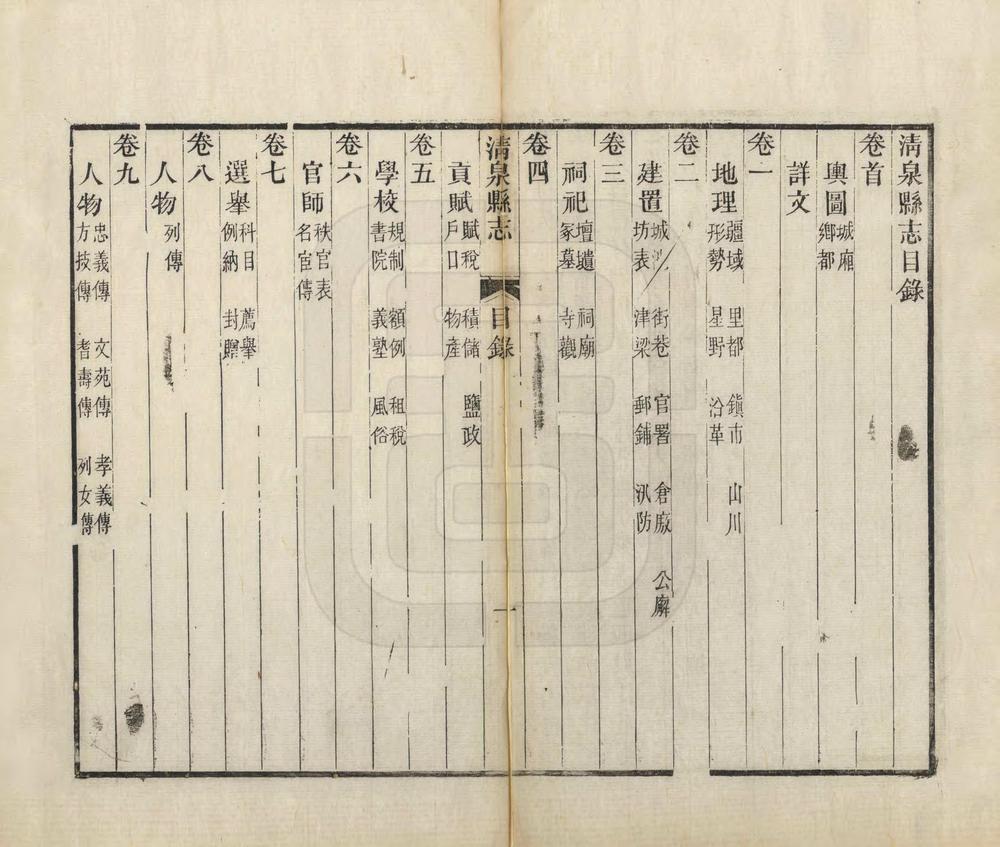 清泉縣志目錄
卷首
輿圖 城廂 鄉都
詳文
卷一
地理 疆域 里都 鎭市 山川 形勢 星野 沿革
卷二
建置 城 街巷 官署 倉廒 公廨 坊表 津梁 郵鋪 汛防
卷三
祠祀 壇壝 祠廟 冢墓 寺觀
卷四
清泉縣志 目錄 一
貢賦 賦稅 積儲 鹽政 戶口 物產
卷五
學校 規制 額例 租稅 書院 義塾 風俗
卷六
官師 秩官表 名宦傳
卷七
選舉 科目 薦舉 例納 封贈
卷八
人物 列傳
卷九
人物 忠義傳 文苑傳 孝義傳 方技傳 耆壽傳 列女傳